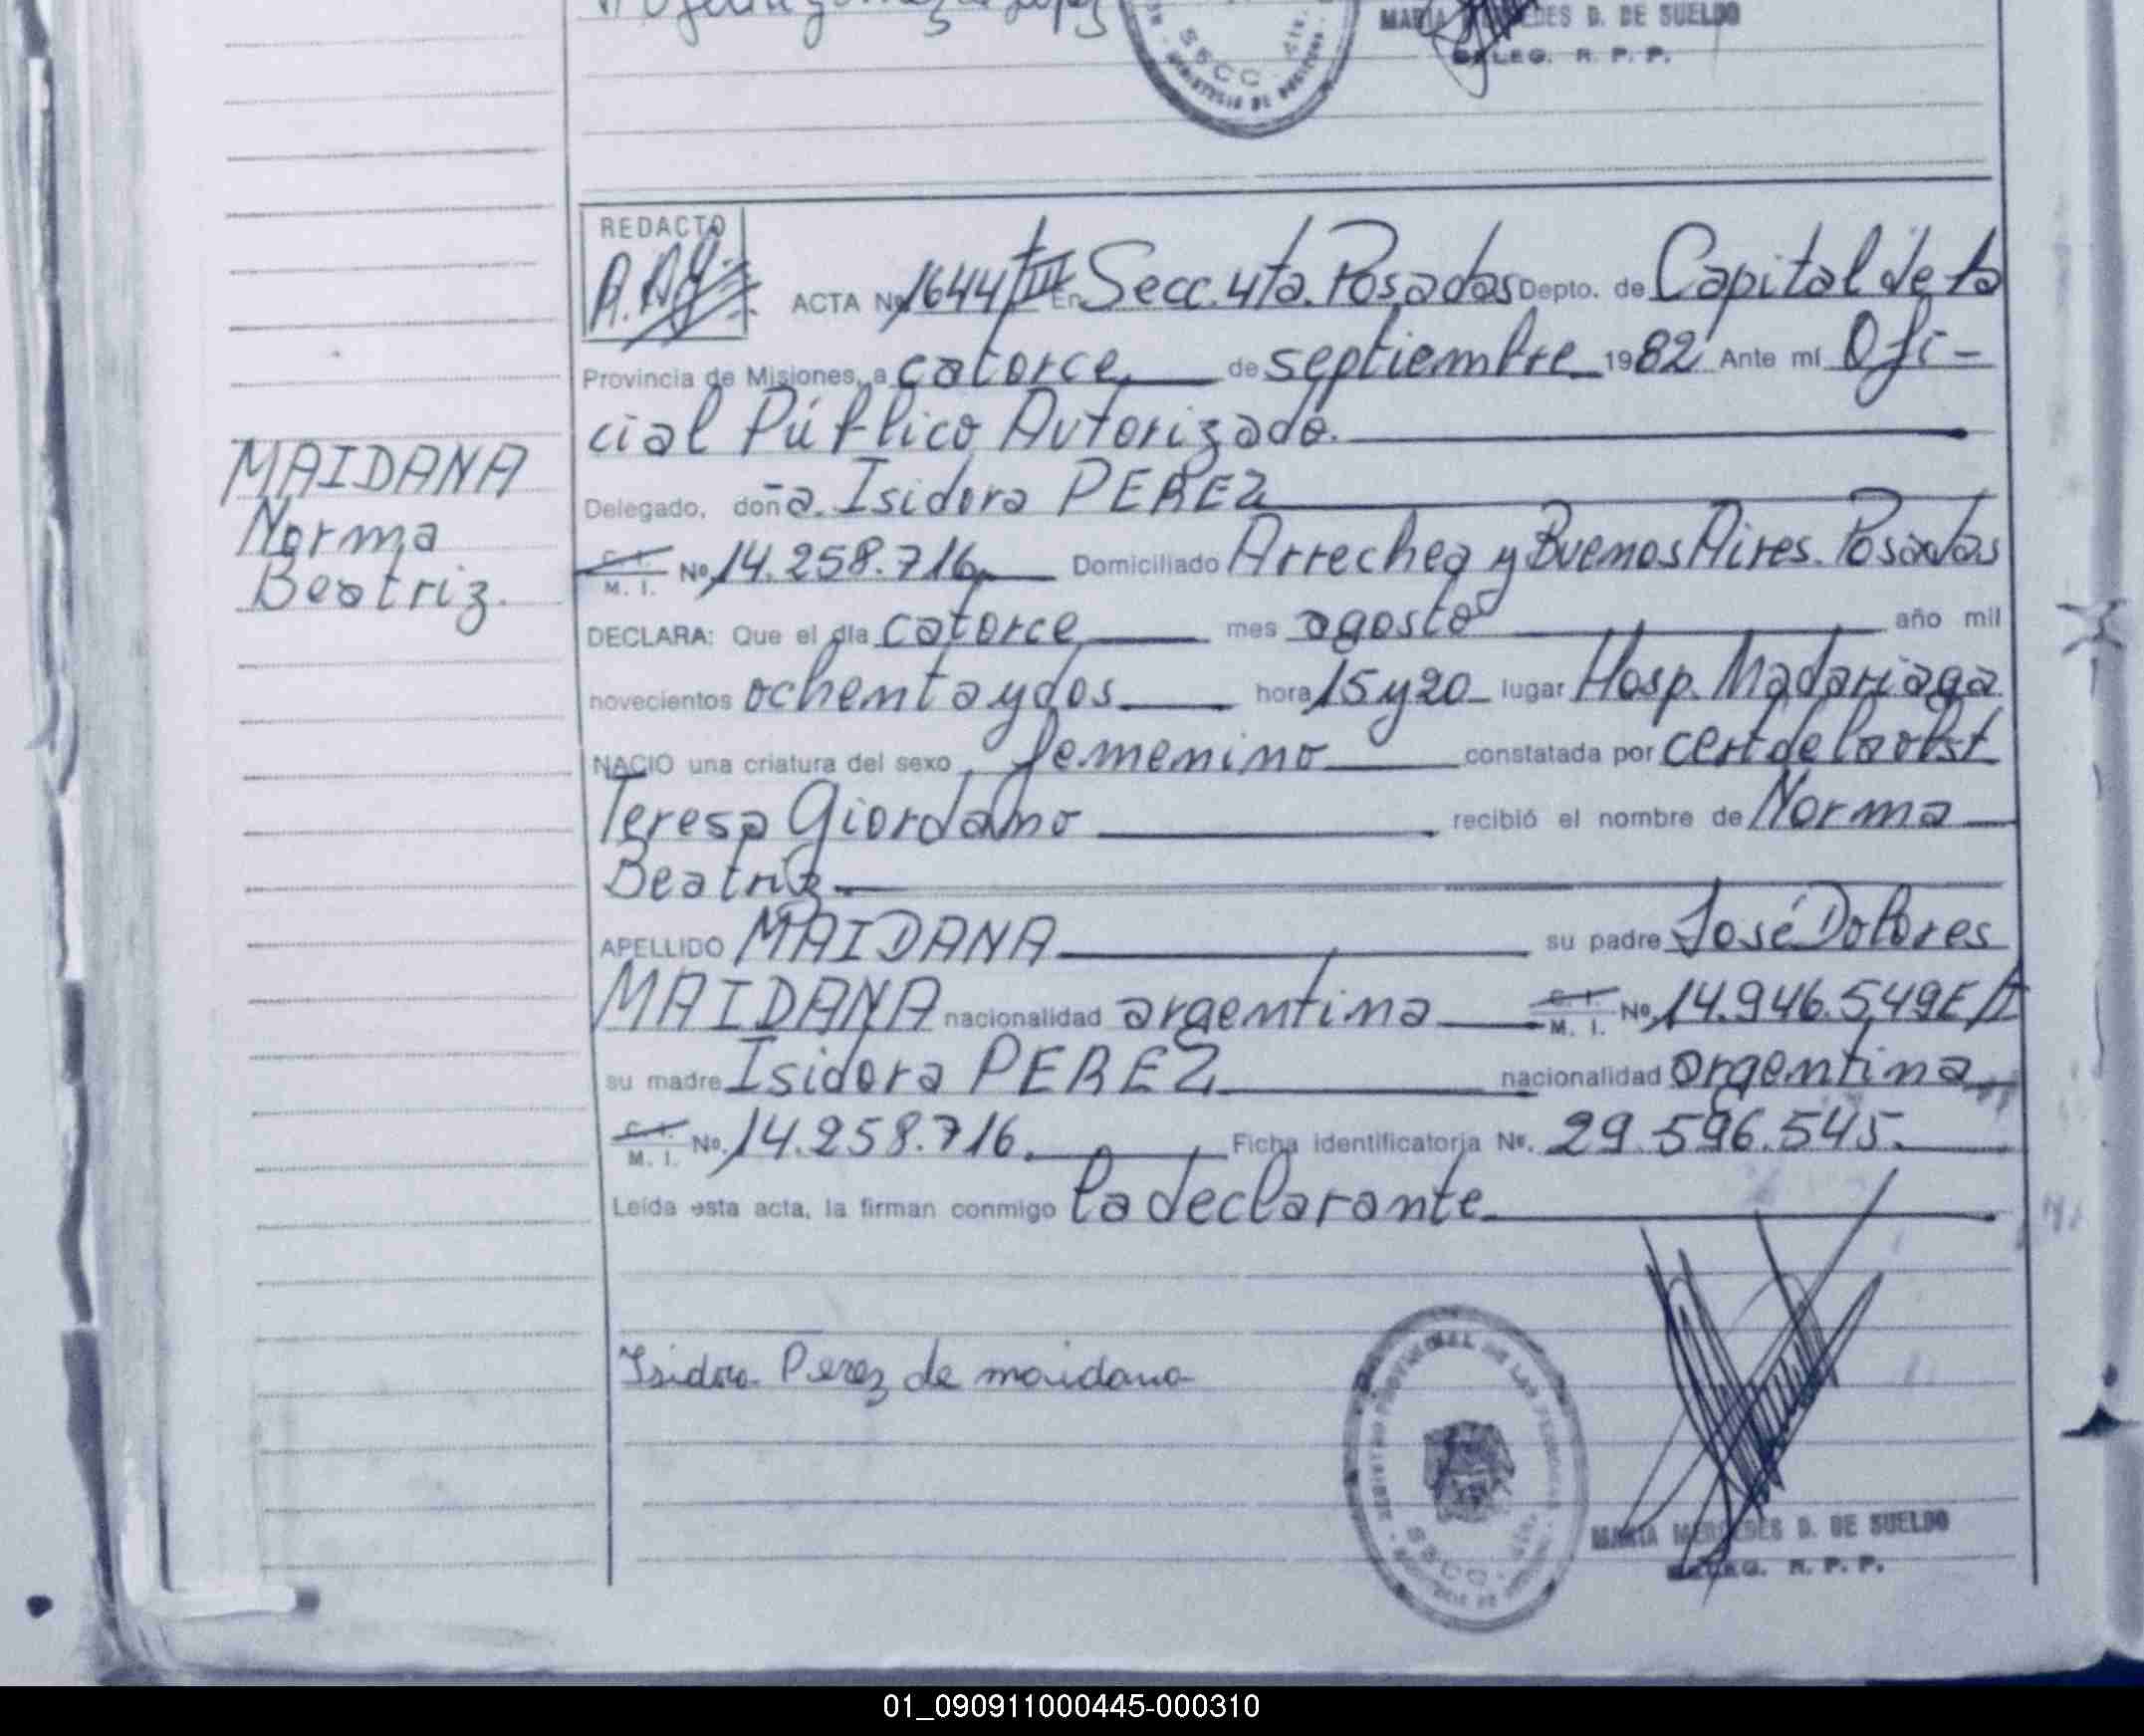 MARIA MERCEDES D. DE SUELDO
DELEG. R. P. P.
SECC
REDACTO
ACTA Nº 1644 TºIII En Secc. 4ta. Posadas Depto. de Capital de la
Provincia de Misiones, a catorce de septiembre 1982 Ante mí Ofi-
cial Público Autorizado.
Delegado, doña. Isidora PEREZ
MAIDANA
Norma
Beatriz.
C. I. M. I. Nº 14.258.716 Domiciliado Arrechea y Buenos Aires. Posadas
DECLARA: Que el día catorce mes agosto año mil
novecientos ochenta y dos hora 15 y 20 lugar Hosp. Madariaga
NACIO una criatura del sexo femenino constatada por cert de la obst
Teresa Giordano recibió el nombre de Norma
Beatriz
APELLIDO MAIDANA su padre José Dolores
MAIDANA nacionalidad argentina C. I. M. I. Nº 14.946.549
su madre Isidora PEREZ nacionalidad argentina
C. I. M. I. Nº 14.258.716. Ficha identificatoria Nº. 29.596.545.
Leída esta acta, la firman conmigo la declarante
Isidora Perez de maidana
REGISTRO PROVINCIAL DE LAS PERSONAS
SECC
MARIA MERCEDES D. DE SUELDO
DELEG. R. P. P.
01_090911000445-000310